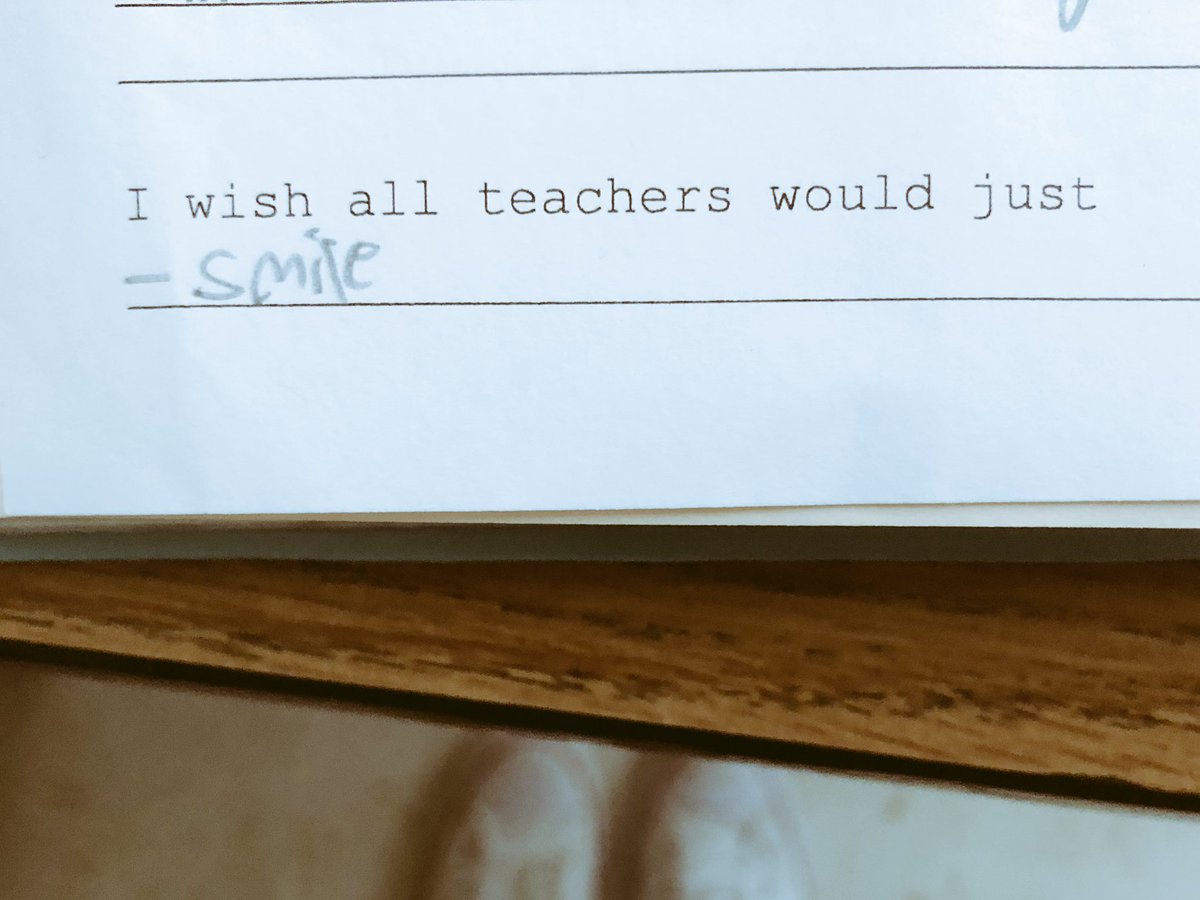 I wish all teachers would just
- smile